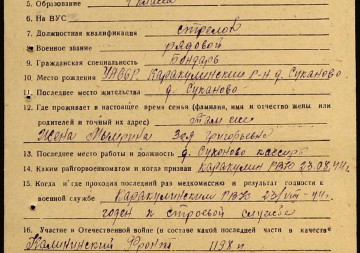 5. Образование 4 класса
6. На ВУС
7. Должностная квалификация стрелок
8. Военное звание рядовой
9. Гражданская специальность
10. Место рождения УАССР Каракулинский р-н д. Суханово
11. Последнее место жительства д. Суханово
12. Где проживает в настоящее время семья (фамилия, имя и отчество жены или
родителей и точный их адрес) Там же
Жена Зоя Григорьевна
13. Последнее место работы и должность д. Суханово
14. Каким райгорвоенкоматом и когда призван Каракулин РВК 23.08.44 г.
15. Когда и где проходил последний раз медкомиссию и результат годности к
военной службе Каракулинским РВК 23/VIII-44 г.
годен к строевой службе
16. Участие в Отечественной войне (в составе какой последней части в качестве
Калининский Фронт 1198 п